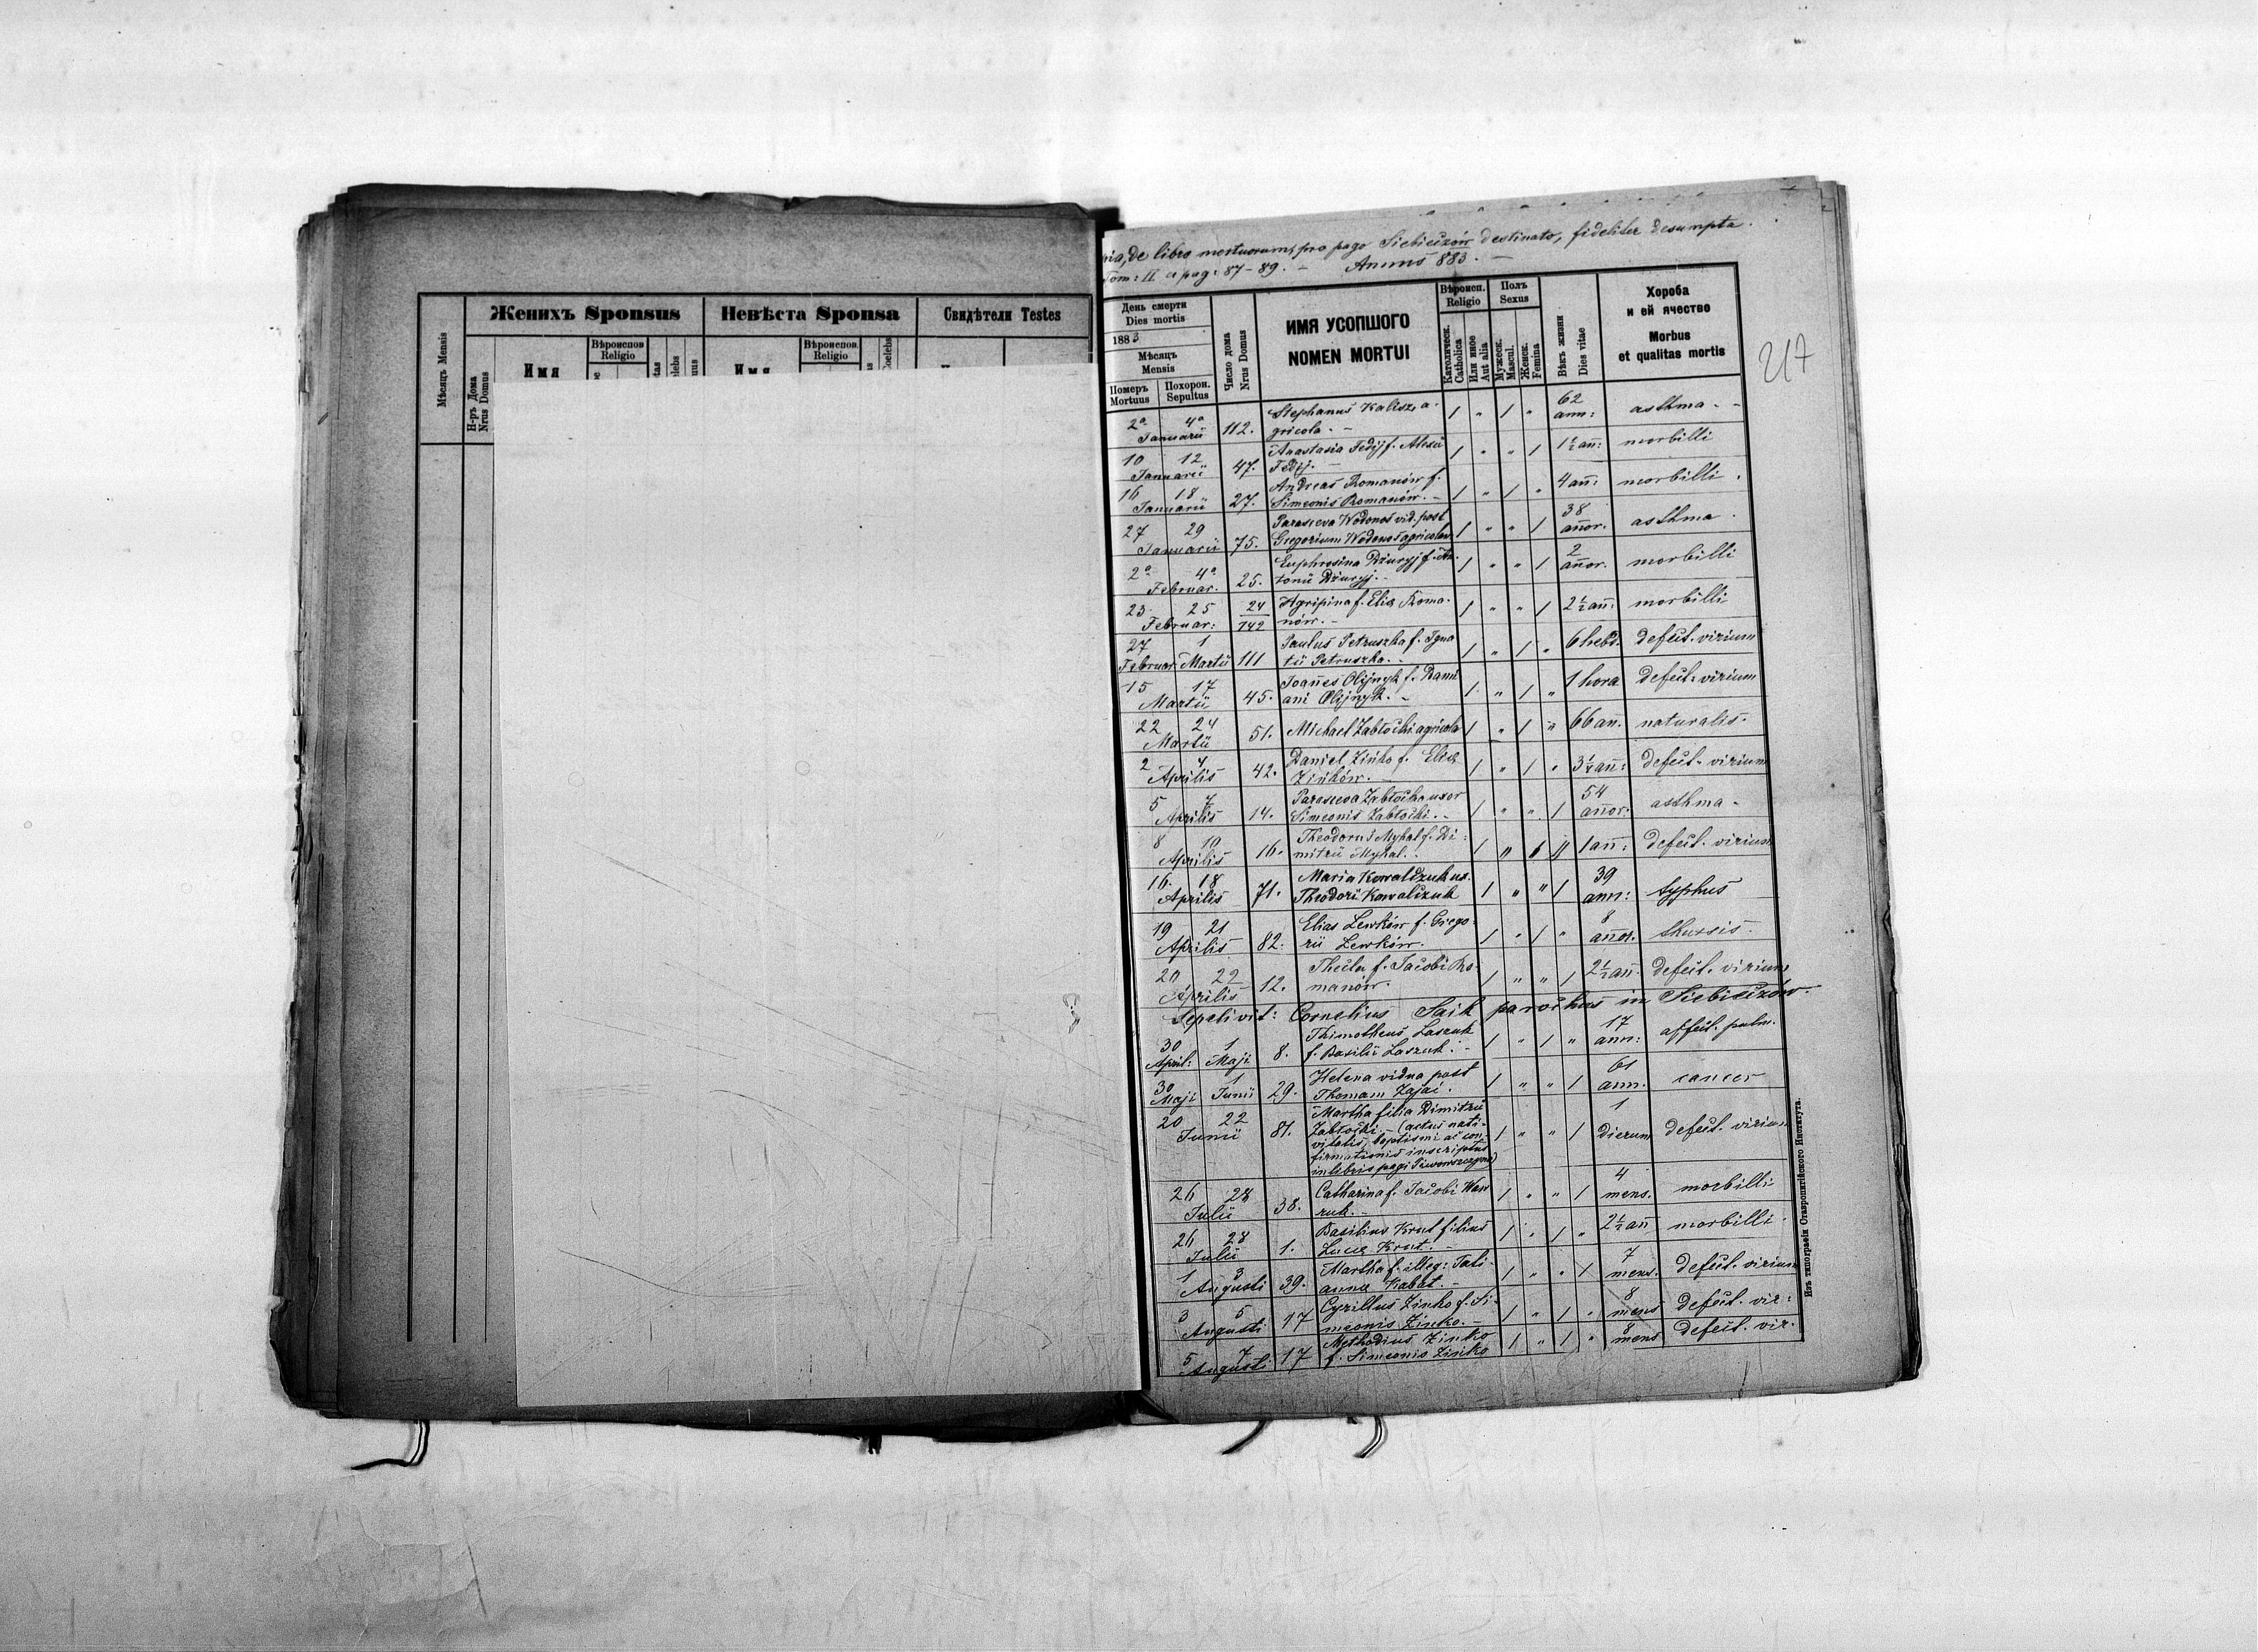 Женихъ Sponsus
Невѣста Sponsa
Свидѣтели Testes
Мѣсяцъ Mensis
Н-ръ Дома
Nrus Domus
Имя
Вѣроиспов
Religio
Имя
Вѣроиспов.
Religio
de libro mortuorum, pro pago Siebieczów destinato, fideliter desumpta.
Tom: II a pag: 87-89. - Annus 883. -
День смерти
Dies mortis
1883
Мѣсяцъ
Mensis
Померъ
Mortuus
Похорон.
Sepultus
Число дома
Nrus Domus
ИМЯ УСОПШОГО
NOMEN MORTUI
Вѣроисп.
Religio
Католическ.
Catholica
Или иное
Aut alia
Полъ
Sexus
Мужеск.
Mascul.
Женск.
Femina
Вѣкъ жизни
Dies vitae
Хороба
и ей ячество
Morbus
et qualitas mortis
217
2a 4a Stephanus Kalisz, a- 1 " 1 " 62
Januarii 112. gricola. - ann: asthma - -
10 12 Anastasia Fedij f. Alexii 1 " " 1 1½ an: morbilli
Januarii 47. Fedij. -
16 18 Andreas Romanów f. 1 " 1 " 4 an̄: morbilli.
Januarii 27. Simeonis Romanów. -
27 29 Parasceva Wodonos vid. post 1 " " 1 38
Januarii 75. Gregorium Wodonos agricolam an̄or. asthma.
2a 4a Euphrosina Dżuryj f. An- 1 " " 1 2
Februar. 25. tonii Dżuryj. - an̄or. morbilli
23 25 24 Agripina f. Eliæ Roma- 1 " " 1 2½ an̄: morbilli
Februar: 142 nów. -
27 1 Paulus Petruszka f. Igna- 1 " 1 " 6 hebd. defect. virium
Februar. Martii 111 tii Petruszka. -
15 17 Joan̄es Olijnyk f. Dami- 1 " 1 " 1 hora defect. virium
Martii 45. ani Olijnyk. -
22 24 51. Michael Zabłocki agricola 1 " 1 " 66 an. naturalis.
Martii
2 4 Daniel Zińko f. Eliæ 1 " 1 " 3¼ an̄: defect. virium
Aprilis 42. Zińków. -
5 7 Parasceva Zabłocka uxor 1 " " 1 54
Aprilis 14. Simeonis Zabłocki. - an̄or. asthma -
8 10 Theodorus Myhal f. Di- 1 " 1 " 1 an̄: defect. virium
Aprilis 16. mitrii Myhal. -
16. 18 Maria Kowalczuk ux. 1 " " 1 39
Aprilis 71. Theodori Kowalczuk ann: typhus
19 21 Elias Lewków f. Grego- 1 " 1 " 8
Aprilis 82. rii Lewków. an̄or. thussis.
20 22 Thecla f. Jacobi Ro- 1 " " 1 2½ an̄. defect. virium
Aprilis 12. manów.
Sepelivit: Cornelius Saik parochus in Siebieczów.
30 1 Thimotheus Laszuk 1 " 1 " 17
April: Maji 8. f. Basilii Laszuk. - ann: affect. pulm.
30 1 Helena vidua post 1 " " 1 61
Maji Junii 29. Thomam Zajac. ann. cancer
20 22 Martha filia Dimitrii 1
Junii 81. Zabłocki. - (actus nati- 1 " " 1 dierum defect. virium
vitatis, baptismi ac con-
firmationis inscriptus
in libris pagi)
26 28 Catharina f. Jacobi Waw- 1 " " 1 4
Julii 38. ruk. - mens. morbilli
26 28 Basilius Krut filius 1 " 1 " 2½ an̄ morbilli.
Julii 1. Lucæ Krut. -
1 3 Martha f. illeg: Tati- 1 " " 1 7
Augusti 39. annæ Kabat. - mens. defect. virium
3 5 Cyrillus Zinko f. Si- 1 " 1 " 8
Augusti 17 meonis Zinko. - mens defect. vir:
5 7 Methodius Zinko 1 " 1 " 8
Augusti 17 f. Simeonis Zinko mens defect. vir.
Изъ типографіи Ставропигійского Института.